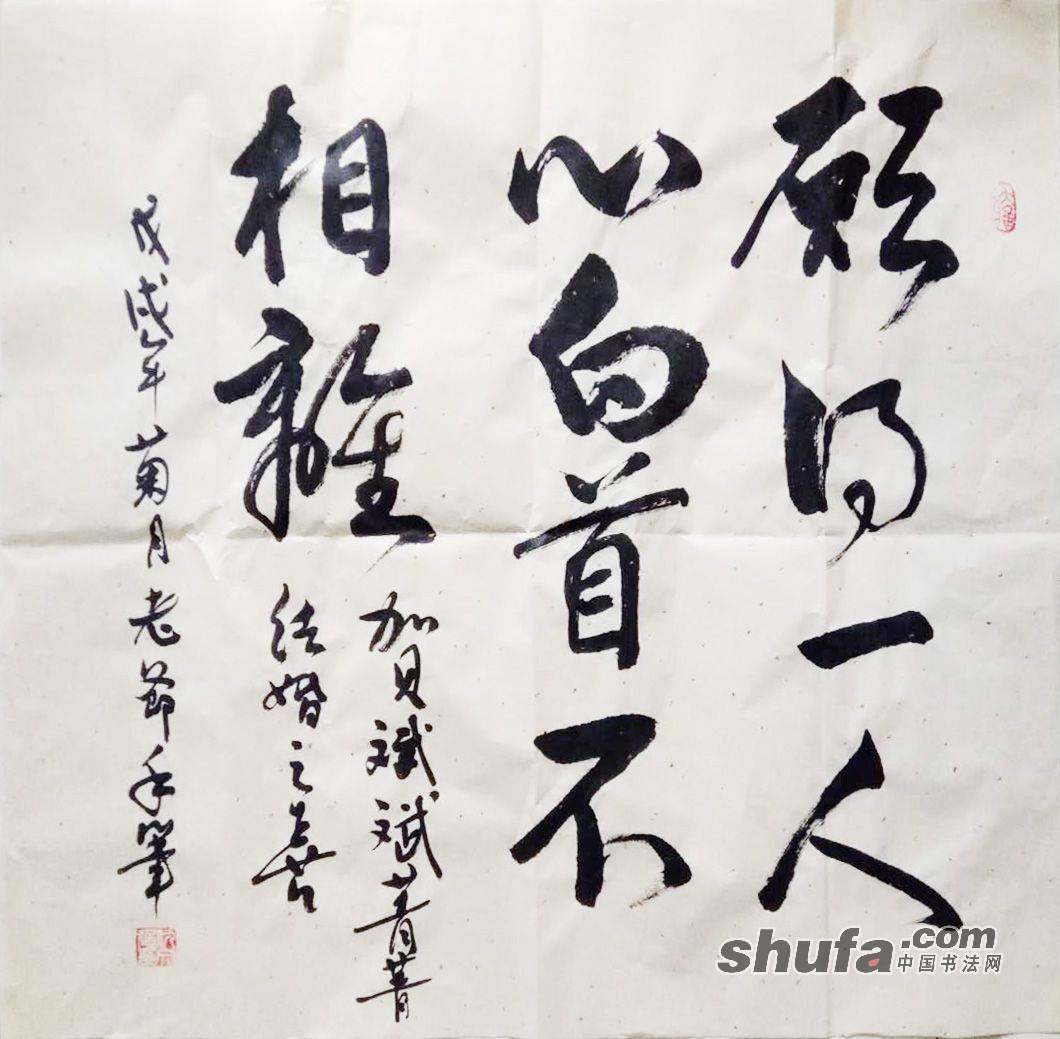 願得一人
心白首不
相離
賀斌斌菁菁
结婚之喜
戊戌年菊月老節手筆
shufa.com
中国书法网